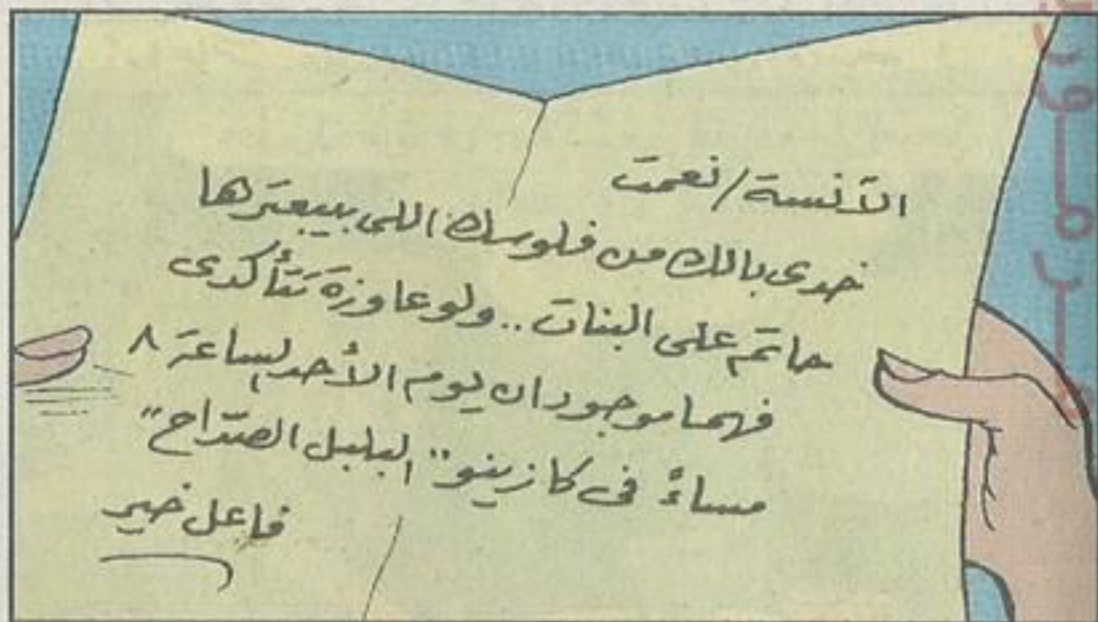 الآنسة/نعمت
خدى بالك من فلوسك اللى بيبعترها
حاتم على البنات.. ولو عاوزة تتأكدى
فهما موجودان يوم الأحد الساعة ٨
مساءً فى كازينو "البلبل الصداح"
فاعل خير